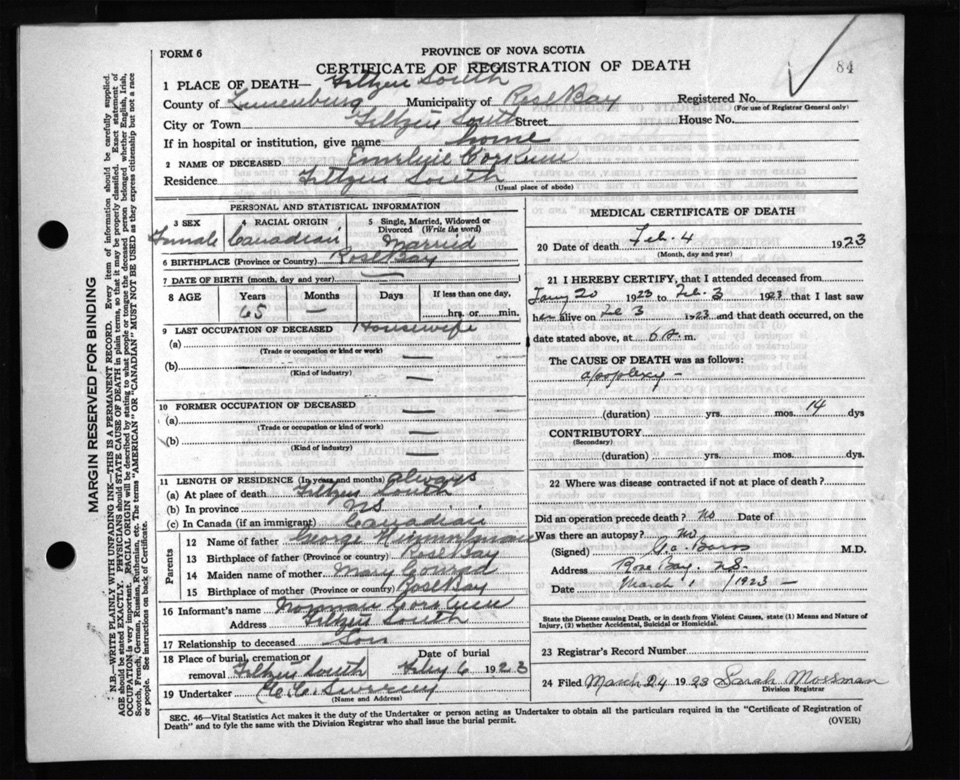 FORM 6
PROVINCE OF NOVA SCOTIA
CERTIFICATE OF REGISTRATION OF DEATH
84
1 PLACE OF DEATH— South
County of Lunenburg Municipality of Rose Bay Registered No.
(For use of Registrar General only)
City or Town South Street House No.
If in hospital or institution, give name home
2 NAME OF DECEASED
Residence South
(Usual place of abode)
PERSONAL AND STATISTICAL INFORMATION
3 SEX 4 RACIAL ORIGIN 5 Single, Married, Widowed or Divorced (Write the word)
Female Canadian Married
6 BIRTHPLACE (Province or Country) Rose Bay
7 DATE OF BIRTH (month, day and year) —
8 AGE Years Months Days If less than one day,
65 — hrs. or min.
9 LAST OCCUPATION OF DECEASED Housewife
(a)
(Trade or occupation or kind or work)
(b) —
(Kind of industry)
—
10 FORMER OCCUPATION OF DECEASED —
(a) —
(Trade or occupation or kind of work)
(b) —
(Kind of industry)
11 LENGTH OF RESIDENCE (In years and months) always
(a) At place of death South
(b) In province NS
(c) In Canada (if an immigrant) Canadian
Parents
12 Name of father George
13 Birthplace of father (Province or country) Rose Bay
14 Maiden name of mother Mary Conrad
15 Birthplace of mother (Province or country) Rose Bay
16 Informant's name Norman
Address South
17 Relationship to deceased Son
18 Place of burial, cremation or removal South Date of burial Feby 6 1923
19 Undertaker
(Name and Address)
MEDICAL CERTIFICATE OF DEATH
20 Date of death Feb. 4 1923
(Month, day and year)
21 I HEREBY CERTIFY, that I attended deceased from
Jany 20 1923 to Feb. 3 1923 that I last saw
her alive on Feb 3 1923 and that death occurred, on
date stated above, at 6 a. m.
The CAUSE OF DEATH was as follows:
apoplexy —
(duration) yrs. mos. 14 dys
CONTRIBUTORY
(Secondary)
(duration) yrs. mos. dys
22 Where was disease contracted if not at place of death?
Did an operation precede death? No Date of
Was there an autopsy? No
(Signed) M.D.
Address Rose Bay. N.S.
Date March 1 / 1923 —
State the Disease causing Death, or in death from Violent Causes, state (1) Means and Nature of Injury, (2) whether Accidental, Suicidal or Homicidal.
23 Registrar's Record Number
24 Filed March 24 1923 Sarah Mossman
Division Registrar
SEC. 46—Vital Statistics Act makes it the duty of the Undertaker or person acting as Undertaker to obtain all the particulars required in the "Certificate of Registration of
Death" and to fyle the same with the Division Registrar who shall issue the burial permit.
(OVER)
MARGIN RESERVED FOR BINDING
N.B.—WRITE PLAINLY WITH UNFADING INK—THIS IS A PERMANENT RECORD. Every item of information should be carefully supplied.
AGE should be stated EXACTLY. PHYSICIANS should STATE CAUSE OF DEATH in plain terms, so that it may be properly classified. Exact statement of
OCCUPATION is very important. RACIAL ORIGIN will be described by stating to what people or tongue the deceased person belonged, whether English, Irish,
Scotch, French, German, Russian, Ruthenian, etc. The terms "AMERICAN" OR "CANADIAN" MUST NOT BE USED as they express citizenship but not a race
or people. See instructions on back of Certificate.